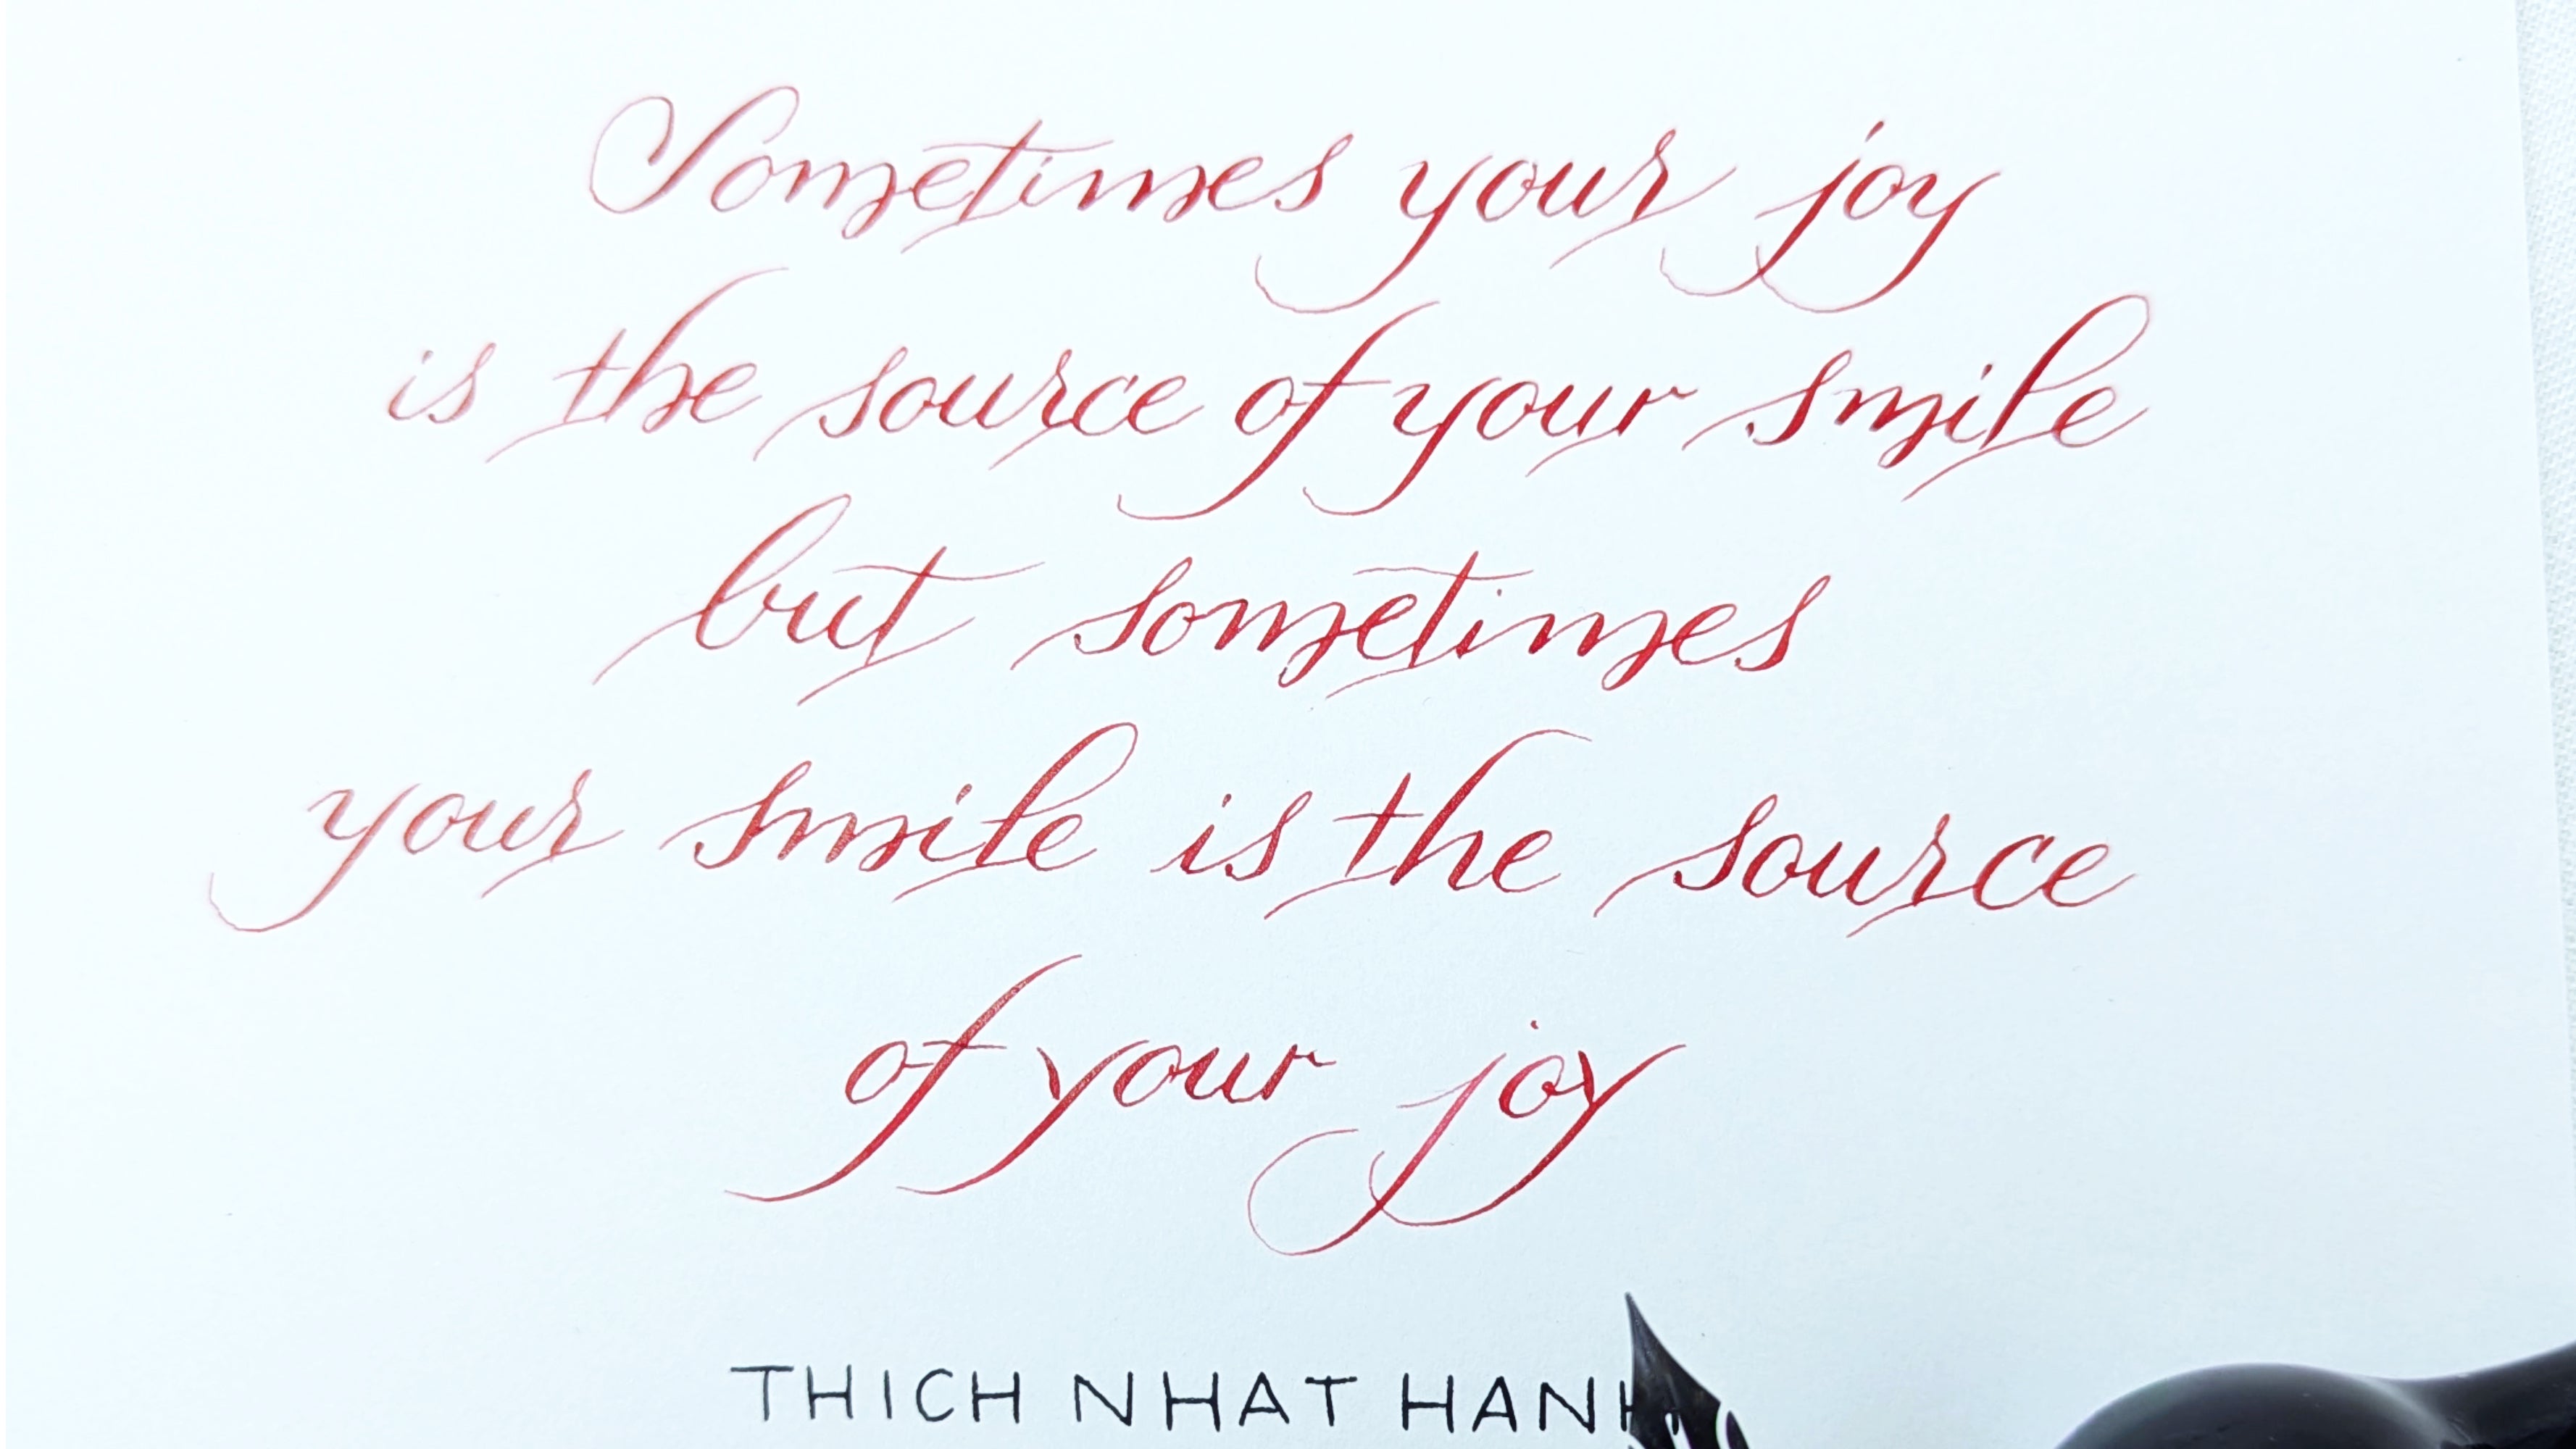 Sometimes your joy
is the source of your smile
but sometimes
your smile is the source
of your joy
THICH NHAT HANH